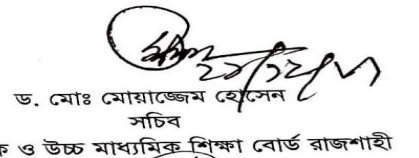 ড. মোঃ মোয়াজ্জেম হোসেন
সচিব
ক ও উচ্চ মাধ্যমিক শিক্ষা বোর্ড রাজশাহী